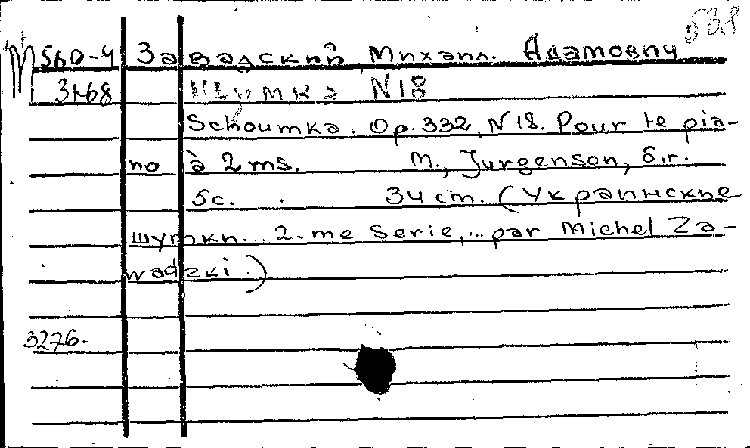 538
М 560-4 Завадский Михаил Адамович
3168 Шумка N18
Schoumka. Op. 332, N18. Pour le pia-
no à 2 ms. М., Jurgenson, б.г.
5с. 34 cm. (Украинские
шумки... 2-me Serie,... par Michel Za-
wadzki.)
3276.